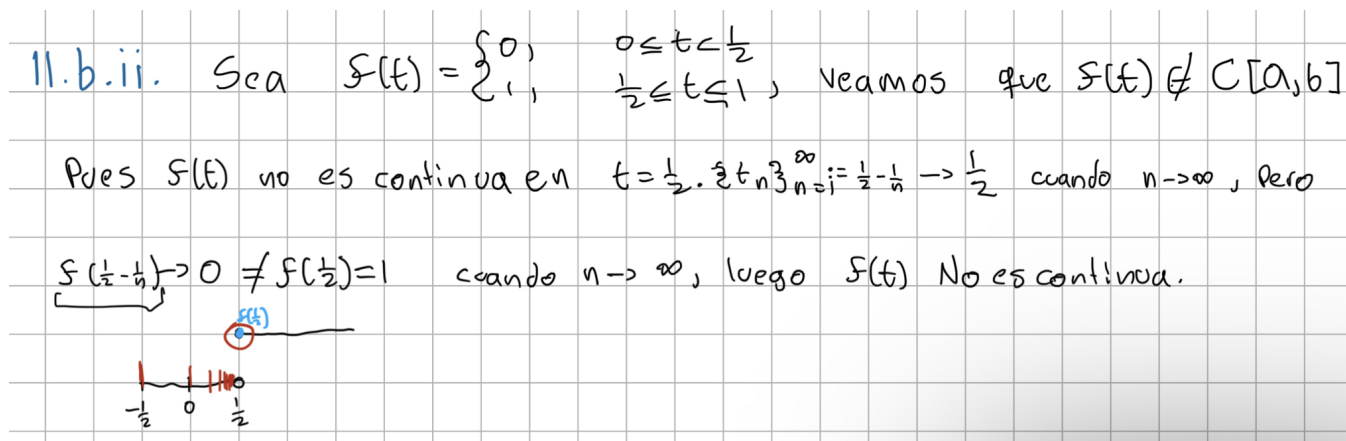 11.b.ii. Sea f(t) = { 0, 0 ≤ t < 1/2
1, 1/2 ≤ t ≤ 1, veamos que f(t) ∉ C[a,b]
Pues f(t) no es continua en t = 1/2. {tn}_{n=1}^∞ := 1/2 - 1/n -> 1/2 cuando n->∞, Pero
f(1/2 - 1/n) -> 0 ≠ f(1/2) = 1 cuando n -> ∞, luego f(t) No es continua.
f(1/2)
-1/2 0 1/2